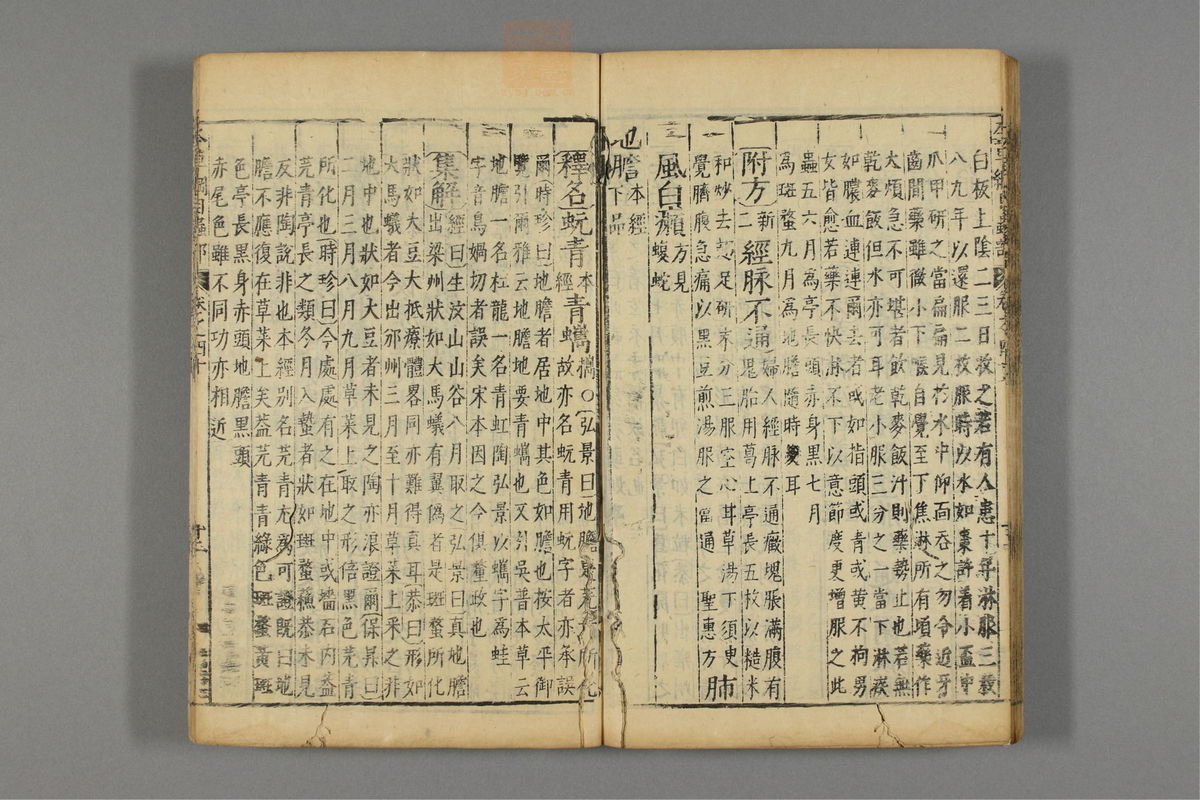 白板上陰二三日收之若有人患十年淋服三枚
八九年以還服二枚服時以水如棗許着小盃中
爪甲研之當扁扁見於水中仰面吞之勿令近牙
齒間藥雖微小下喉自覺至下焦淋所有頃藥作
大煩急不可堪者飲乾麥飯汁則藥勢止也若無
乾麥飯但水亦可耳老小服三分之一當下淋疾
如膿血連連爾去者或如指頭或青或黄不拘男
女皆愈若藥不快淋不下以意節度更增服之此
蟲五六月為亭長頭赤身黑七月
為斑蝥九月為地膽隨時變耳
附方新二經脉不通婦人經脉不通癥塊脹滿腹有
鬼胎用葛上亭長五枚以糙米
和炒去翅足研末分三服空心甘草湯下須臾
覺臍腹急痛以黑豆煎湯服之當通 聖惠方 肺
風白癩方見蝮蛇
地膽本經下品
釋名蚖青本經青蠵蠵○弘景曰地膽是芫青所化
故亦名蚖青用蚖字者亦承誤
爾時珍曰地膽者居地中其色如膽也按太平御
覽引爾雅云地膽地要青蠵也又引吳普本草云
地膽一名杜龍一名青虹陶弘景以蠵字為蛙
字音烏媧切者誤矣宋本因之今俱釐政也
集解經曰生汶山山谷八月取之弘景曰真地膽
出梁州狀如大馬蟻有翼偽者是斑蝥所化
狀如大豆大抵療體畧同亦難得真耳恭曰形如
大馬蟻者今出邠州三月至十月草菜上采之非
地中也狀如大豆者未見之陶亦浪證爾保昇曰
二月三月八月九月草菜上取之形倍黑色芫青
所化也時珍曰今處處有之在地中或墻石内蓋
芫青亭長之類冬月入蟄者狀如斑蝥蘓恭未見
反非陶說非也本經別名芫青尤為可證既曰地
膽不應復在草菜上矣蓋芫青青綠色斑蝥黃斑
色亭長黑身赤頭地膽黑頭
赤尾色雖不同功亦相近